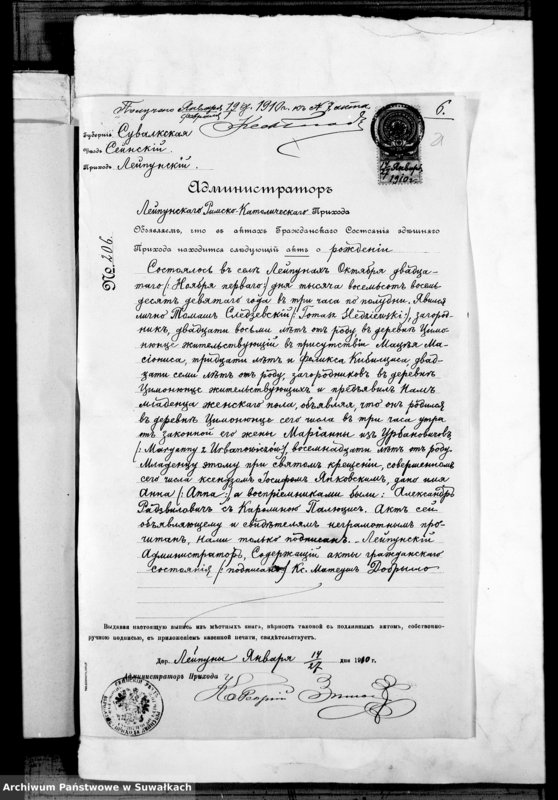 Получено Января 19 1910 г. къ № 3 акта
Февраля
6.
Губернія Сувалкская
Уѣздъ Сейнскій.
Приходъ Лейпунскій.
Января
1910 г.
Администраторъ
Лейпунскаго Римско-Католическаго Прихода
Объявляемъ, что въ актахъ Гражданскаго Состоянія здѣшняго
Прихода находится слѣдующій актъ о рожденіи
№ 206.
Состоялось въ селѣ Лейпунахъ Октября двадца-
таго (: Ноября перваго:) дня тысяча восемьсотъ восемь
десятъ девятаго года въ три часа по полудни. Явился
лично Томашъ Следзевскій (: Tomasz :), загород-
никъ, двадцати восьми лѣтъ отъ роду въ деревнѣ
жительствующій въ присутствіи Мацѣя Ма-
сіониса, тридцати лѣтъ и Феликса двад-
цати семи лѣтъ отъ роду, загородниковъ въ деревнѣ
жительствующихъ и предъявилъ Намъ
младенца женскаго пола, объявляя, что онъ родился
въ деревнѣ сего числа въ три часа утра
отъ законной его жены Маріанны изъ Урбановичовъ
(: Maryanny z :), восемнадцати лѣтъ отъ роду.
Младенцу этому при святомъ крещеніи, совершенномъ
сего числа ксендзомъ Іосифомъ Янковскимъ, дано имя
Анна (: Anna :) а воспріемниками были: Александръ
Радзвиловичъ съ Каролиною Палюцисъ. Актъ сей
объявляющему и свидѣтелямъ неграмотнымъ про-
читанъ, Нами только подписанъ. Лейпунскій
Администраторъ, Содержащій акты гражданскаго
состоянія (: подписано) Кс. Матеушъ Добрыло
Выдавая настоящую выпись изъ мѣстныхъ книгъ, вѣрность таковой съ подлиннымъ актомъ, собственно-
ручною подписью, съ приложеніемъ казенной печати, свидѣтельствуетъ.
Дер. Лейпуны Января 14/27 дня 1910 г.
Администраторъ Прихода
Archiwum Państwowe w Suwałkach